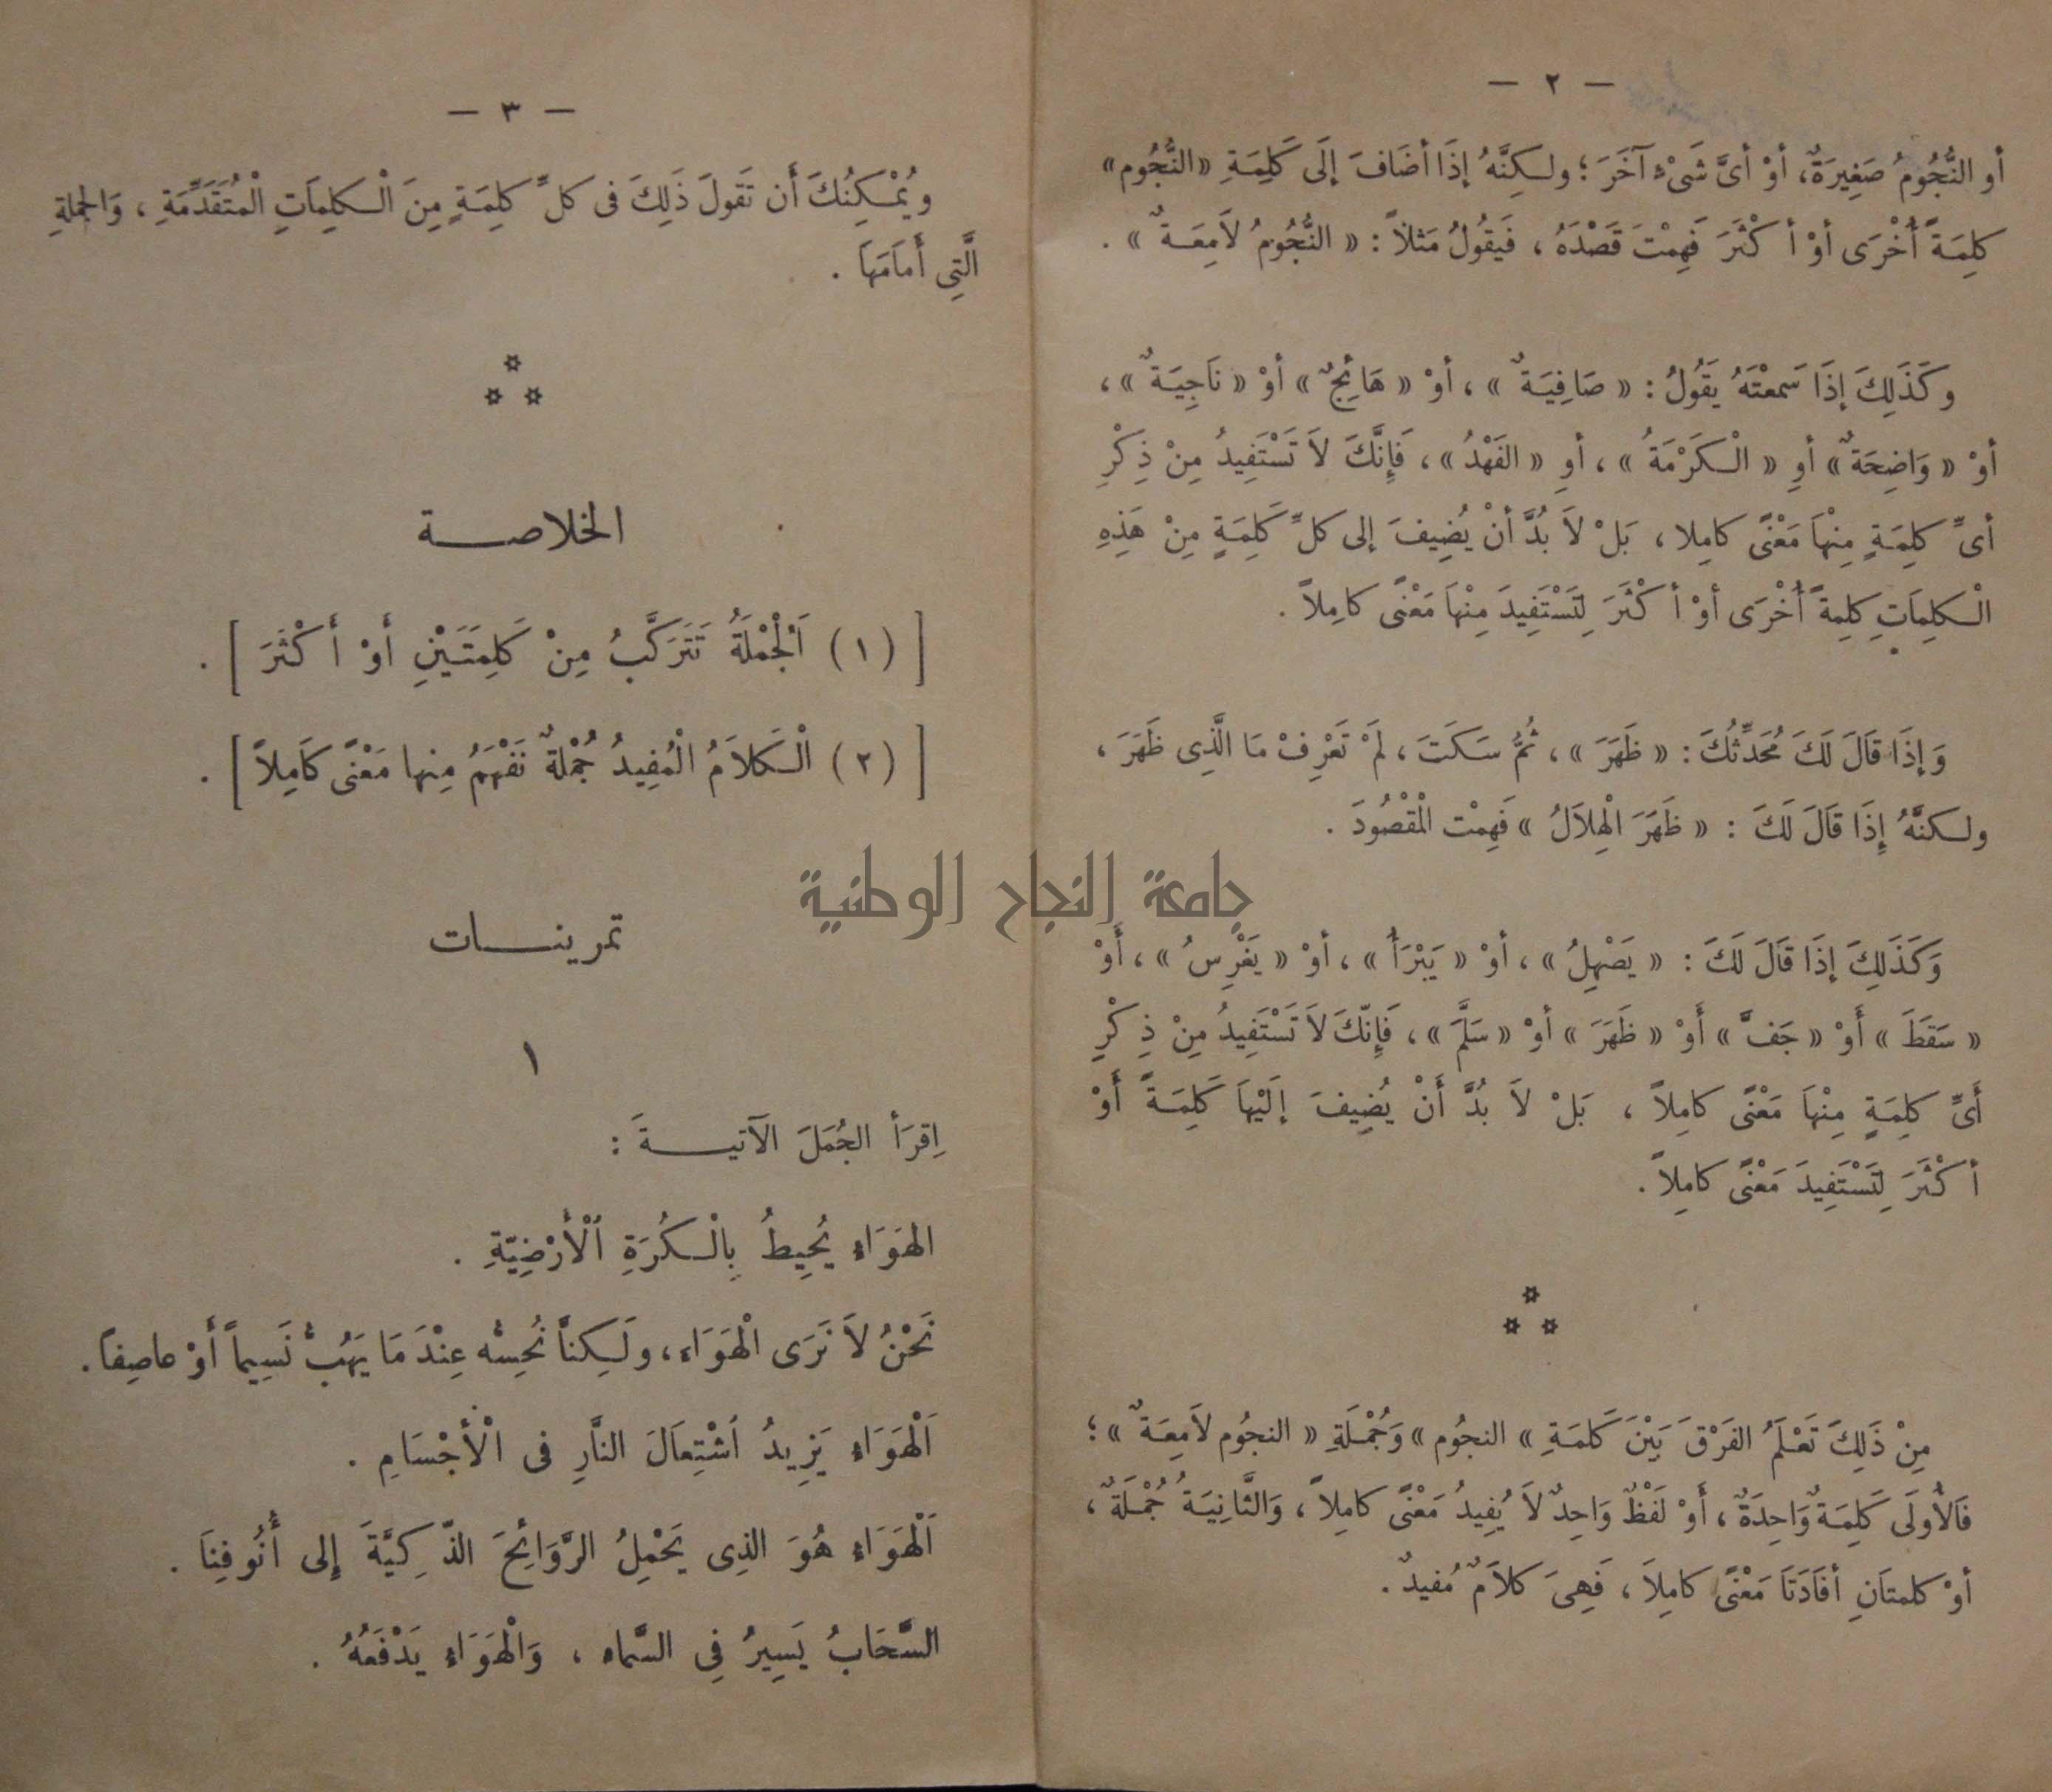 — ٢ —
أو النُّجُومُ صَغِيرَةٌ، أوْ أىَّ شَىْءٍ آخَرَ ؛ ولكِنَّهُ إذَا أضَافَ إلَى كَلِمَةِ «النُّجُوم»
كلِمَةً أُخْرَى أوْ أكْثَرَ فَهِمْتَ قَصْدَهُ ، فَيقُولُ مَثلاً : « النُّجُومُ لاَمِعَةٌ » .
وكَذَلِكَ إذَا سَمعْتَهُ يقُولُ : « صَافِيَةٌ » ، أوْ « هَائِجٌ » أوْ « نَاجِيَةٌ » ،
أوْ « وَاضِحَةٌ » أوِ « الْكَرْمَةُ » ، أوِ « الفَهْدُ » ، فَإِنَّكَ لاَ تَسْتَفِيدُ مِنْ ذِكْرِ
أىِّ كلِمَةٍ مِنْهاَ مَعْنًى كامِلا ، بَلْ لاَ بُدَّ أنْ يُضِيفَ إلى كلِّ كَلِمَةٍ مِنْ هَذِهِ
الْكلِمَاتِ كلِمةً أُخْرَى أوْ أكْثَرَ لِتَسْتَفِيدَ مِنْهاَ مَعْنًى كامِلاً .
وَإذَا قالَ لَكَ مُحَدِّثُكَ : « ظَهَرَ » ، ثُمَّ سَكَتَ ، لَمْ تَعْرِفْ مَا الَّذِى ظَهَرَ ،
ولكنَّهُ إِذَا قَالَ لَكَ : « ظَهَرَ الْهِلاَلُ » فَهِمْت الْمَقْصُودَ .
وَكَذَلِكَ إذَا قَالَ لَكَ : « يَصْهِلُ » ، أوْ « يَبْرَأُ » ، أوْ « يَغْرِسُ » ، أَوْ
« سَقَطَ » أَوْ « جَفَّ » أَوْ « ظَهَرَ » أوْ « سَلَّمَ » ، فَإِنّكَ لاَ تَسْتَفِيدُ مِنْ ذِكْرٍ
أَىِّ كلِمَةٍ مِنْهاَ مَعْنًى كامِلاً ، بَلْ لاَ بُدَّ أَنْ يُضِيفَ إلَيْهاَ كَلِمَةً أَوْ
أكْثَرَ لِتَسْتَفِيدَ مَعْنًى كامِلاً .
مِنْ ذَلِكَ تَعْلَمُ الفَرْقَ بَيْنَ كَلمَةِ « النجُوم » وَجُمْلَةِ « النجُوم لاَمِعَةٌ » ؛
فَالأُولَى كَلِمَةٌ وَاحِدَةٌ ، أَوْ لَفْظٌ وَاحِدٌ لاَ يُفِيدُ مَعْنًى كامِلاً ، وَالثَّانِيَةُ جُمْلَةٌ ،
أوْ كلمتَانِ أفَادَتَا مَعْنًى كامِلاَ ، فَهِىَ كلاَمٌ مُفيدٌ .
— ٣ —
ويُمْكِنُكَ أَن تَقولَ ذَلِكَ فى كلِّ كلِمَةٍ مِنَ الْكلِمَاتِ الْمُتَقَدِّمَةِ ، وَالجملةِ
الَّتِى أَمَامَهاَ .
الخلاصة
[ (١) اَلْجُمْلَةُ تَتَرَكَّبُ مِنْ كَلِمَتَيْنِ أَوْ أَكْثَرَ ] .
[ (٢) الْكَلاَمُ الْمُفِيدُ جُمْلَةٌ نَفْهَمُ مِنها مَعْنًى كَامِلاً ] .
تمرينات
١
اِقرَأ الجُمَلَ الآتيةَ :
الهَوَاءُ يُحِيطُ بِالْكُرَةِ اَلْأَرْضِيّةِ .
نَحْنُ لاَ نَرَى الْهَوَاءَ ، ولَكِنَّا نُحِسُّه عِنْدَ مَا يَهُبُّ نَسِيماً أَوْ عاصِفاً .
اَلْهَوَاءُ يَزِيدُ اَشْتِعاَلَ النَّارِ فى الْأَجْسَامِ .
اَلْهَوَاءُ هُوَ الذِى يَحْمِلُ الرَّوَائِحَ الذّكِيَّةَ إلى أُنُوفِنَا .
السَّحَابُ يَسِيرُ فِى السَّماءِ ، وَالْهَوَاءُ يَدْفَعُهُ .
جامعة النجاح الوطنية